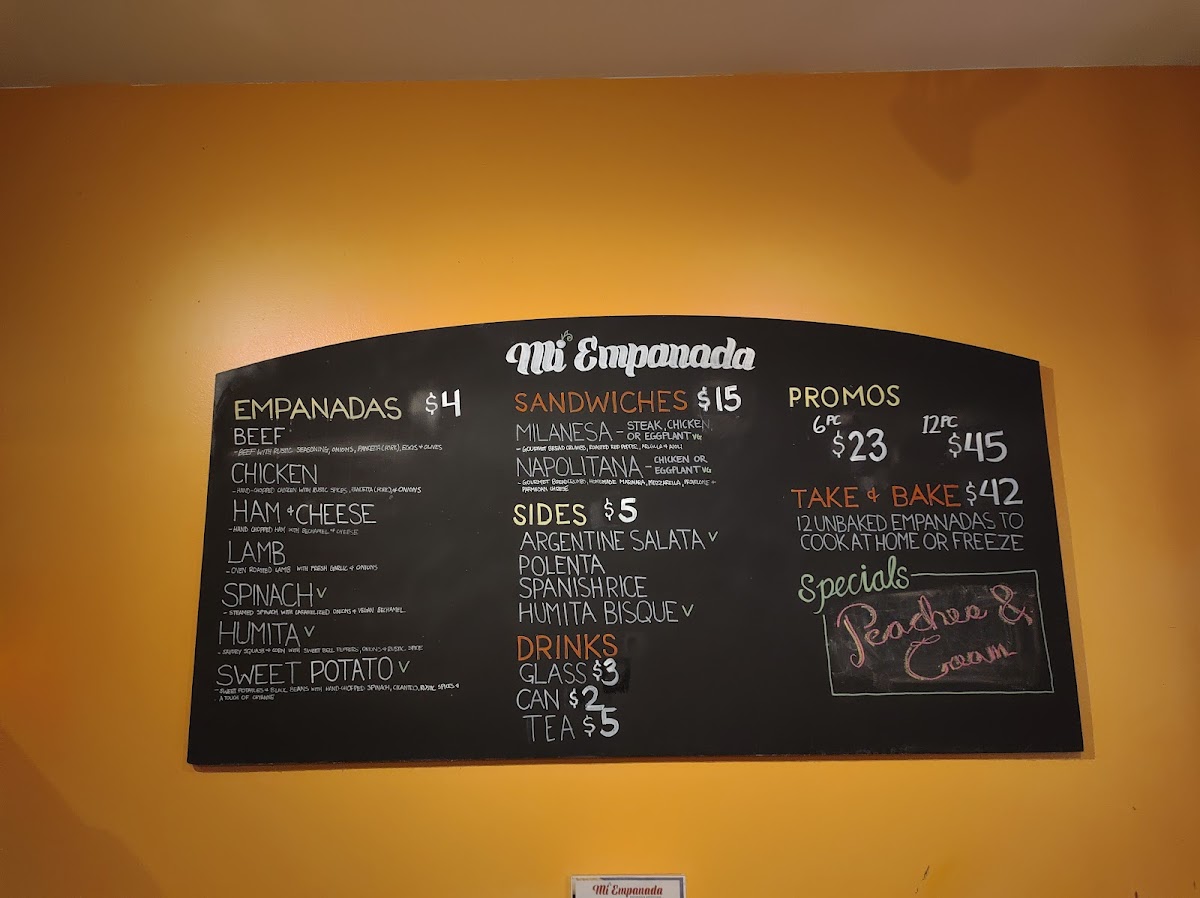 Mi Empanada
EMPANADAS $4
BEEF
- BEEF WITH RUSTIC SEASONING, ONIONS, PANCETTA (PORK), EGGS & OLIVES
CHICKEN
- HAND-CHOPPED CHICKEN WITH RUSTIC SPICES, PANCETTA (PORK) & ONIONS
HAM & CHEESE
- HAND CHOPPED HAM WITH BECHAMEL & CHEESE
LAMB
- OVEN ROASTED LAMB WITH FRESH GARLIC & ONIONS
SPINACH V
- STEAMED SPINACH WITH CARAMELIZED ONIONS & VEGAN BECHAMEL
HUMITA V
- SAVORY SQUASH & CORN WITH SWEET BELL PEPPERS, ONIONS & RUSTIC SPICE
SWEET POTATO V
- SWEET POTATOES & BLACK BEANS WITH HAND-CHOPPED SPINACH, CILANTRO, RUSTIC SPICES &
A TOUCH OF CAYENNE
SANDWICHES $15
MILANESA - STEAK, CHICKEN,
OR EGGPLANT VG
- GOURMET BREAD CRUMBS, ROASTED RED PEPPER, ARUGULA & AIOLI
NAPOLITANA - CHICKEN OR
EGGPLANT VG
- GOURMET BREADCRUMBS, HOMEMADE MARINARA, MOZZARELLA, PROVOLONE &
PARMESAN CHEESE
SIDES $5
ARGENTINE SALATA V
POLENTA
SPANISH RICE
HUMITA BISQUE V
DRINKS
GLASS $3
CAN $2
TEA $5
PROMOS
6PC $23
12PC $45
TAKE & BAKE $42
12 UNBAKED EMPANADAS TO
COOK AT HOME OR FREEZE
Specials
Peaches &
Cream
Mi Empanada